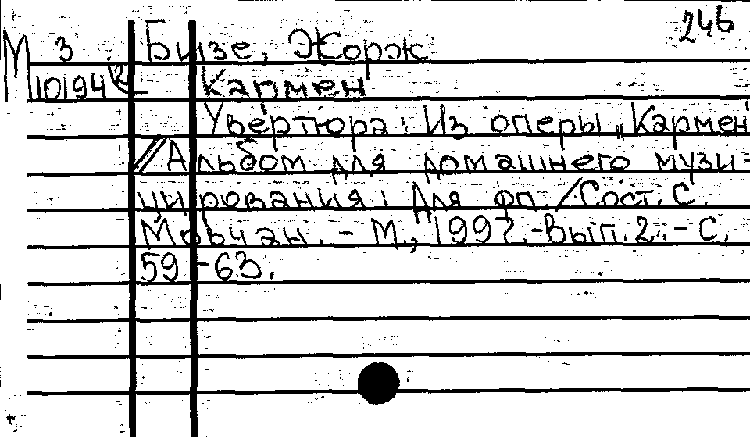 246
М 3 Бизе, Жорж
10194 Кармен
Увертюра: Из оперы „Кармен
// Альбом для домашнего музи-
цирования: Для фп. / Сост. С.
Мовчан. - М., 1997. - Вып. 2. - С.
59 - 63.